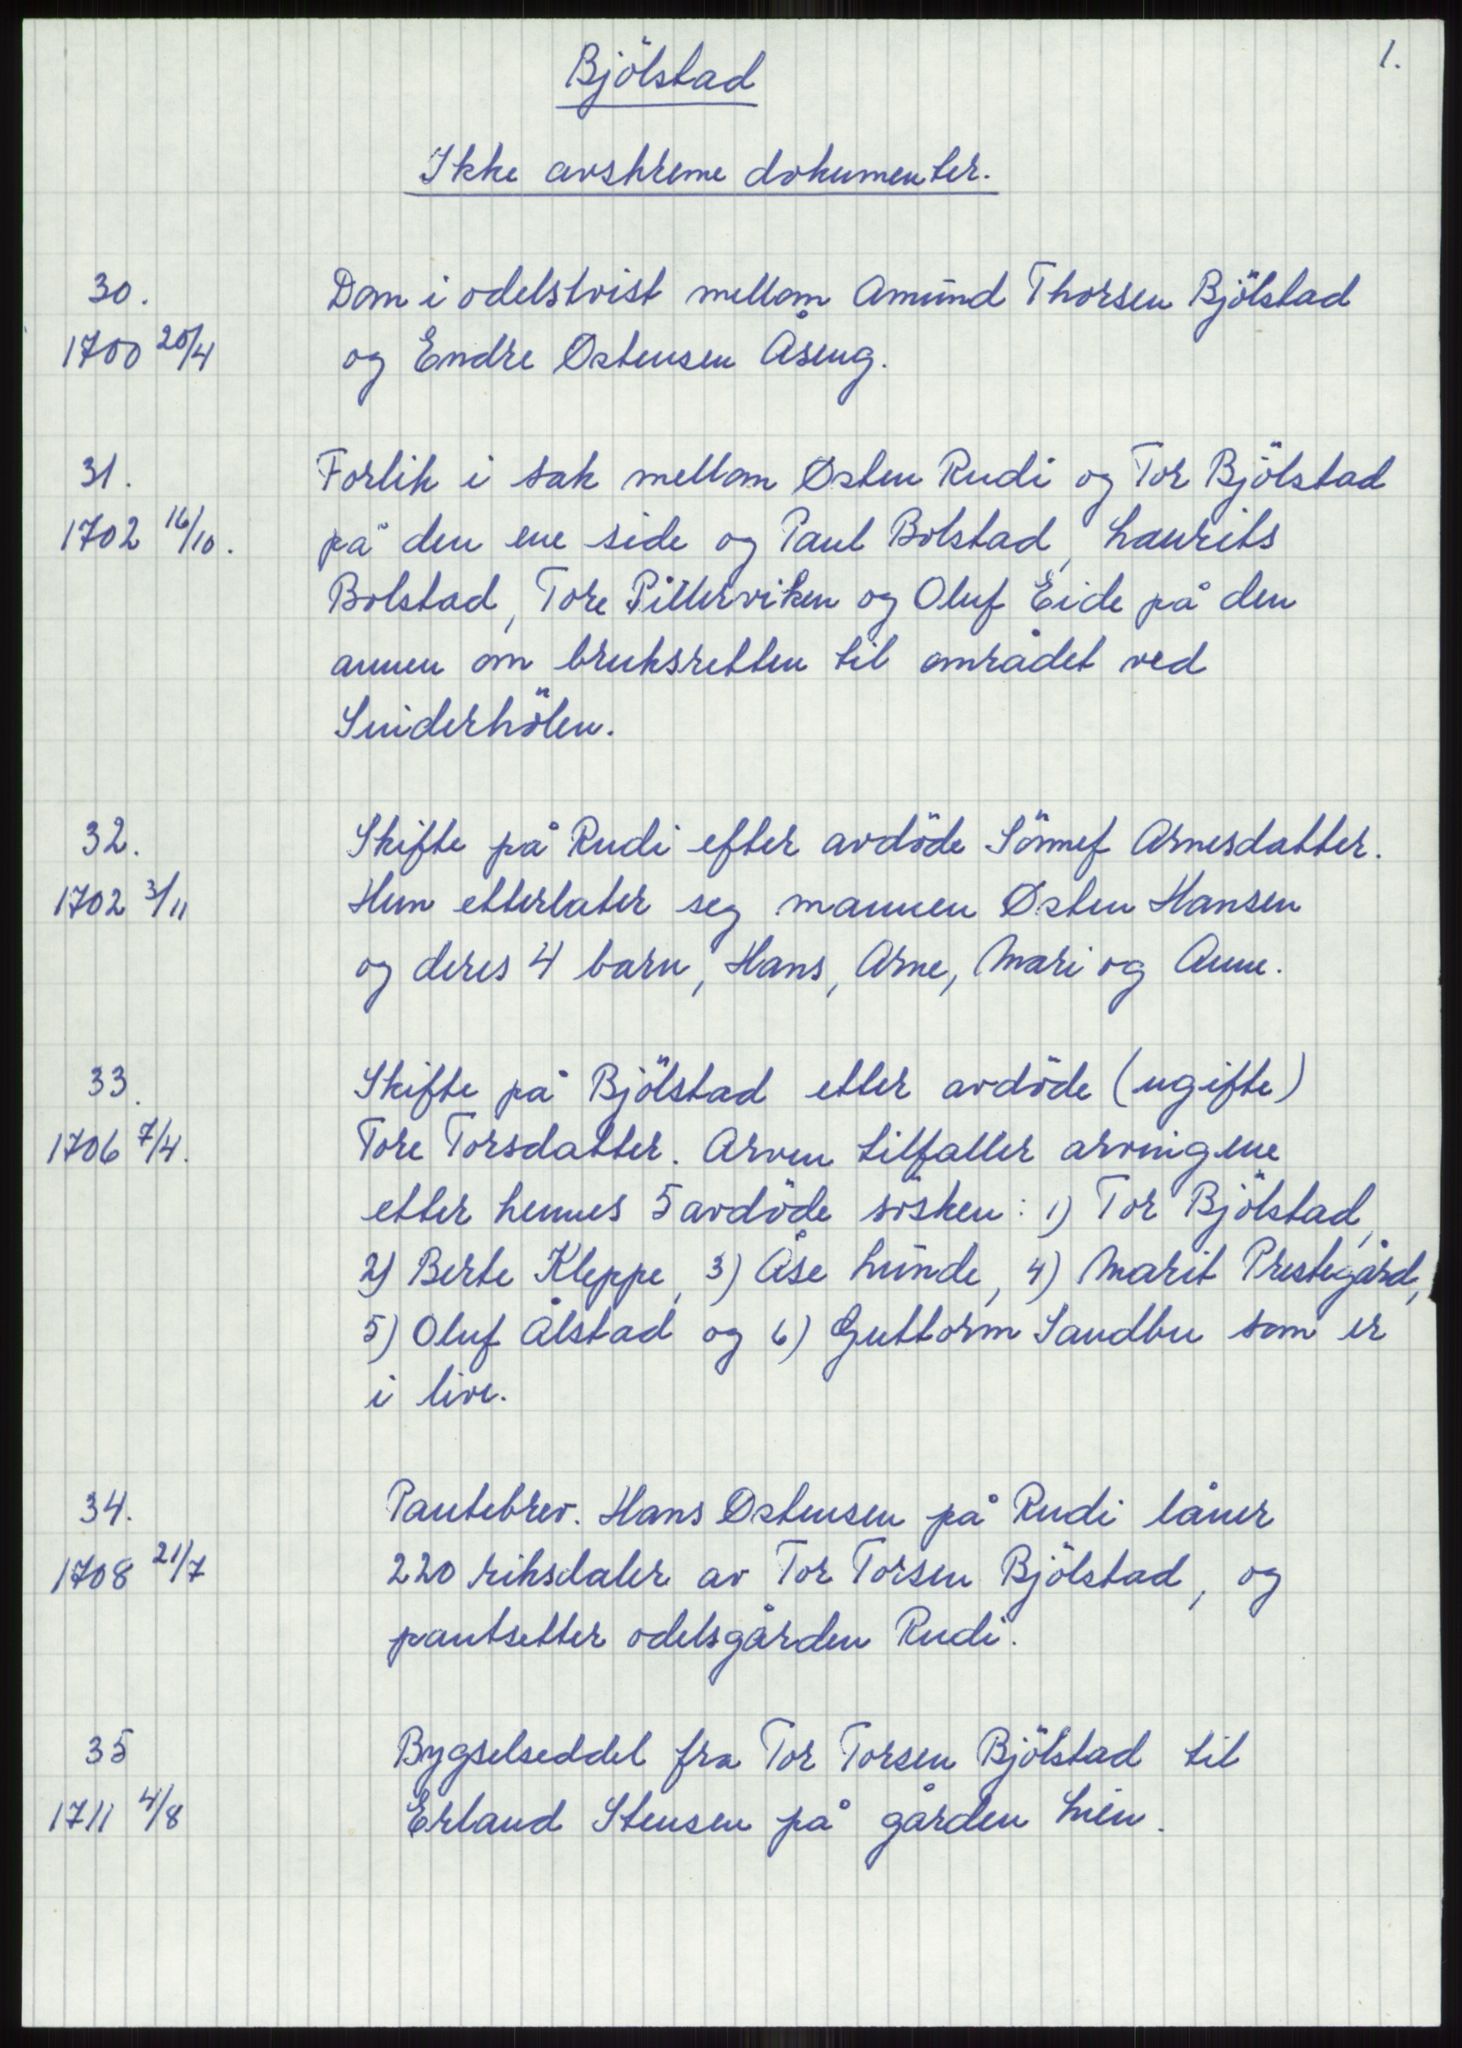 1.
Bjölstad
Ikke avskrevne dokumenter.
30. Dom i odelstvist mellom Amund Thorsen Bjölstad
1700 20/4 og Endre Østensen Åseng.
31. Forlik i sak mellom Østen Rudi og Tor Bjölstad
1702 16/10. på den ene side og Paul Bolstad, Laurits
Bolstad, Tore Pillerviken og Oluf Eide på den
annen om bruksretten til området ved
32. Skifte på Rudi efter avdöde Sönnef Arnesdatter.
1702 3/11 Hun etterlater seg mannen Østen Hansen
og deres 4 barn, Hans, Arne, Mari og Anne.
33. Skifte på Bjölstad etter avdöde (ugifte)
1706 7/4. Tore Torsdatter. Arven tilfaller arvingene
etter hennes 5 avdöde sösken: 1) Tor Bjölstad,
2) Berte Kleppe, 3) Åse Lunde, 4) Marit Prestegård,
5) Oluf Ålstad og 6) Guttorm Sandbu som er
i live.
34. Pantebrev. Hans Østensen på Rudi låner
1708 21/7 220 riksdaler av Tor Torsen Bjölstad, og
pantsetter odelsgården Rudi.
35 Bygselseddel fra Tor Torsen Bjölstad til
1711 4/8 Erland Stensen på gården Lien.